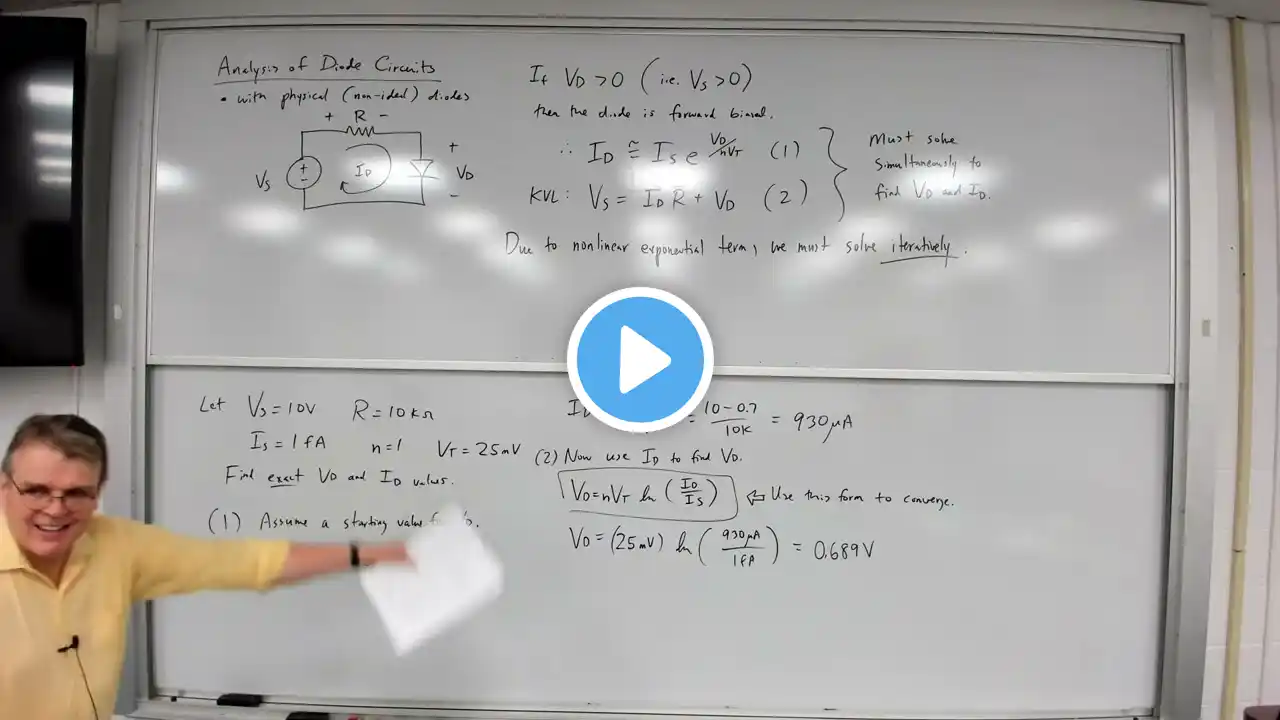 Analysis of Diode Circuits
• with physical (non-ideal) diodes
+ R -
Vs
+
-
ID
+
VD
-
If VD > 0 (i.e. Vs > 0)
then the diode is forward biased.
∴ ID ≅ Is e^(VD/nVT) (1)
KVL: Vs = ID R + VD (2)
Must solve
simultaneously to
find VD and ID.
Due to nonlinear exponential term, we must solve iteratively.
Let Vs = 10V R = 10kΩ
Is = 1fA n = 1 VT = 25mV
Find exact VD and ID values.
(1) Assume a starting value
ID = (10 - 0.7)/10K = 930μA
(2) Now use ID to find VD.
VD = nVT ln (ID/Is) ⇐ Use this form to converge.
VD = (25mV) ln (930μA/1fA) = 0.689V